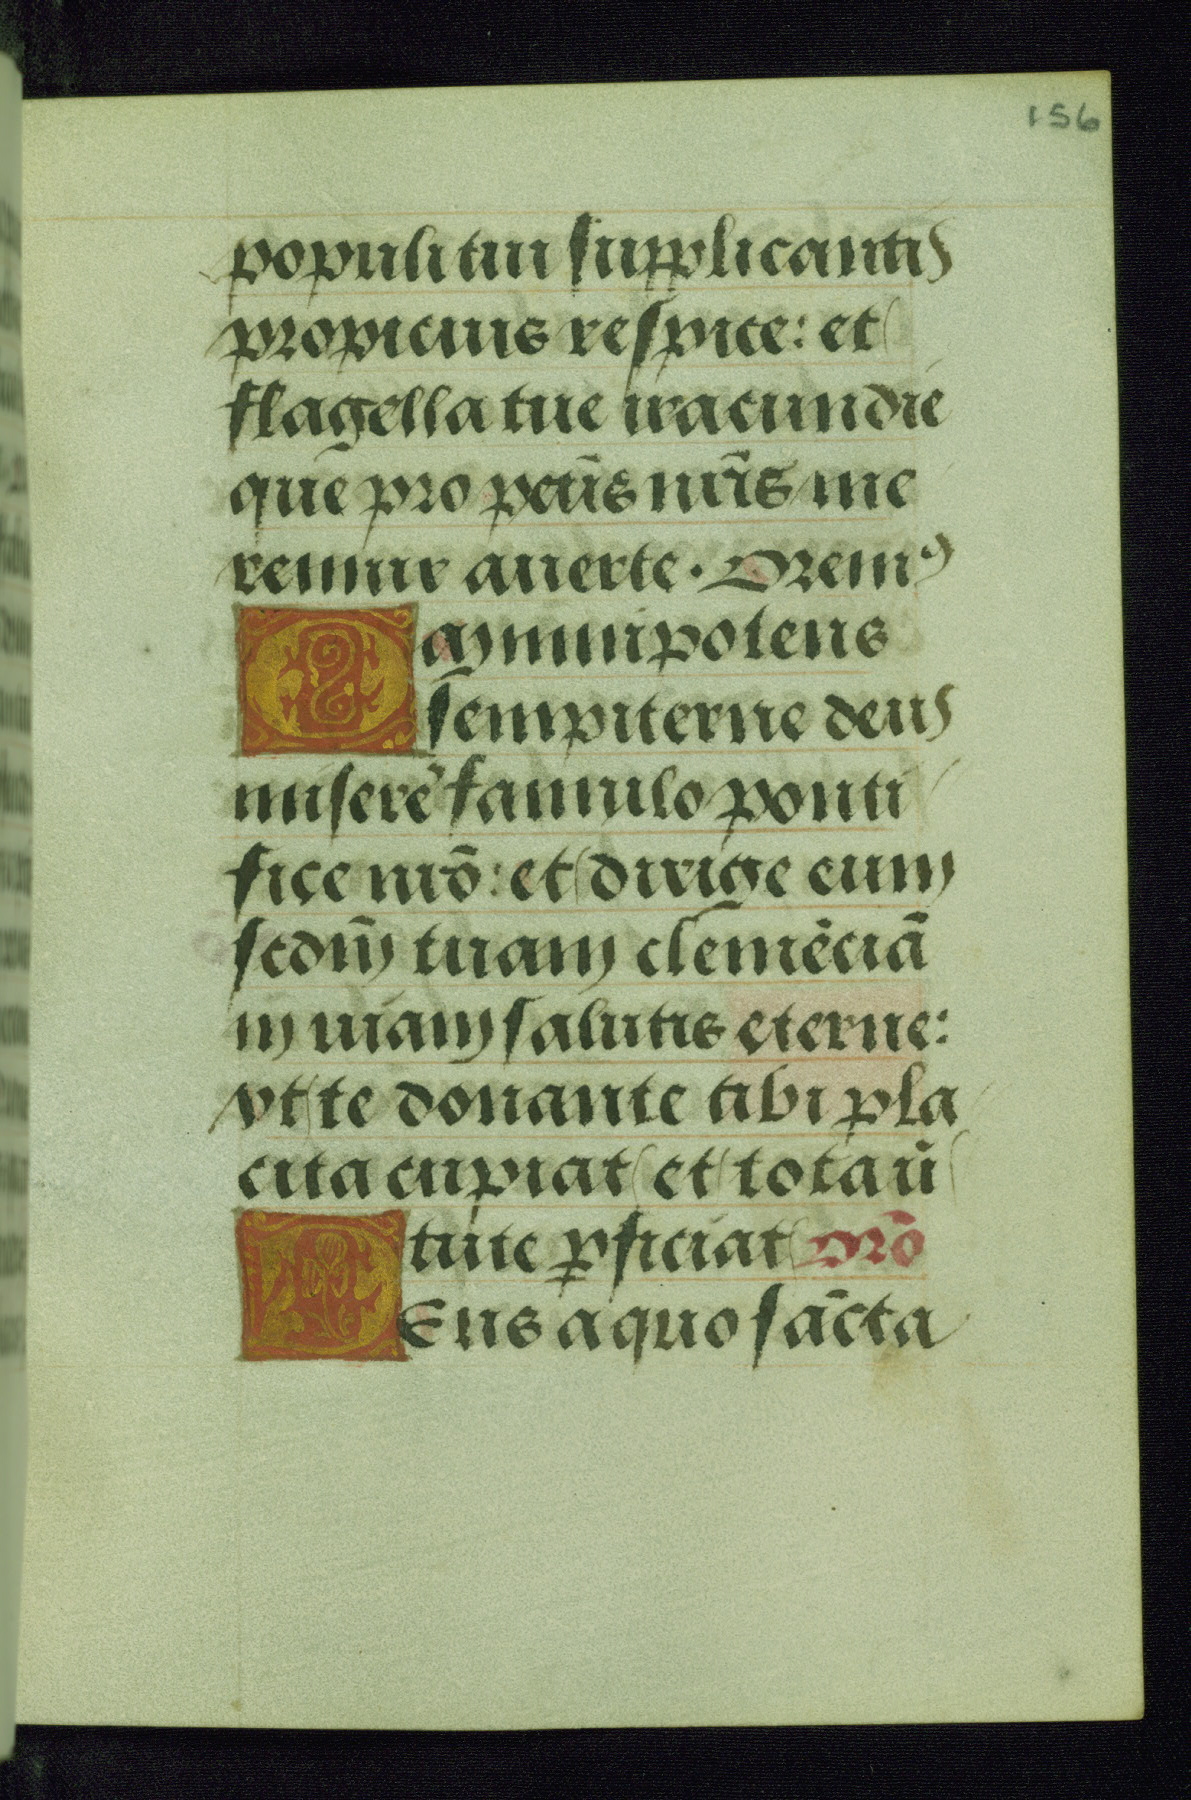 156
populi tui supplicantis
propicius respice: et
flagella tue iracundie
que pro pctis̄ nr̄is me
remur auerte. Oremꝰ
O mnipotens
sempiterne deus
miserē famulo ponti
fice nrō: et dirige eum
scdm̄ tuam clemēciā
in uiam salutis eterne:
vt te donante tibi pla
cita cupiat et tota uī
tute ꝑficiat Orō
D Eus a quo sācta